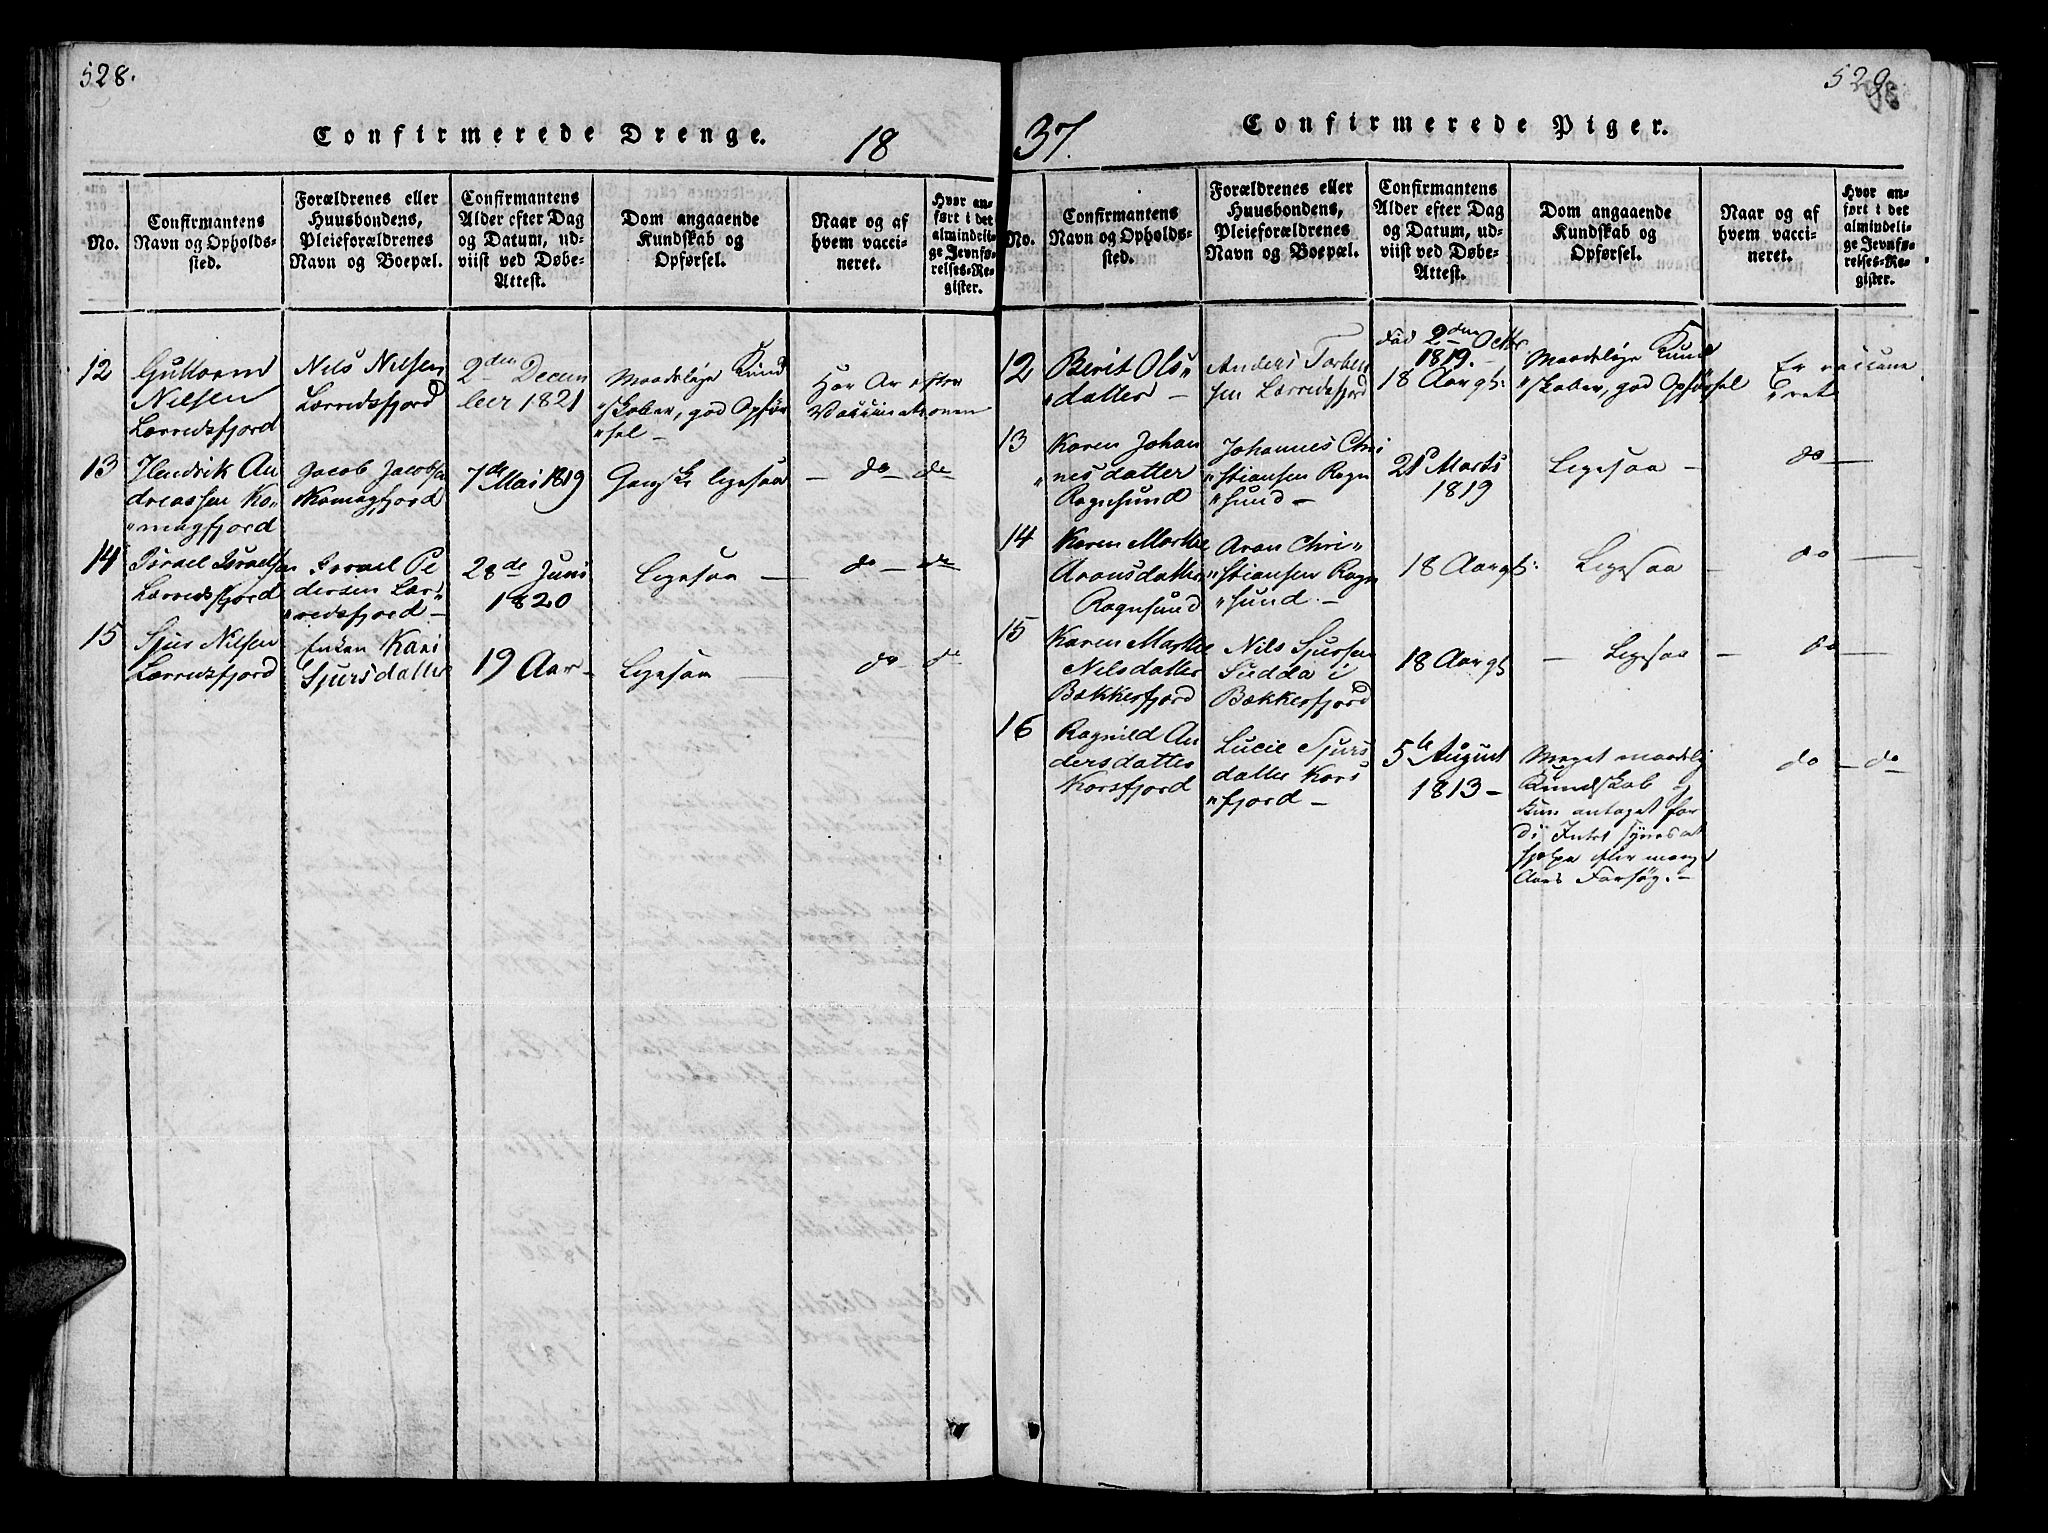 528.
Confirmerede Drenge.
18
No.
Confirmantens
Navn og Opholds-
sted.
Forældrenes eller
Huusbondens,
Pleieforældrenes
Navn og Boepæl.
Confirmantens
Alder efter Dag
og Datum, ud-
viist ved Døbe-
Attest.
Dom angaaende
Kundskab og
Opførsel.
Naar og af
hvem vacci-
neret.
Hvor an-
ført i det
almindeli-
ge Jevnfø-
relses-Re-
gister.
12
Guttorm
Nilsen
Lærredsfjord
Nils Nilsen
Lærredsfjord
2den Decem
ber 1821
Maadelige Kund
"skaber, god Opfør
"sel —
Har Ar efter
Vaccinationen
13
Hendrik An
dreassen Ko"
"magfjord
Jacob Jacobsen
Komagfjord
7de Mai 1819
Ganske ligesaa
— do
do
14
Israel Israelsen
Lærredsfjord
Israel Pe
dersen Lær"
"redsfjord —
28de Juni
1820
Ligesaa —
do —
do
15
Sjur Nilsen
Lærredsfjord
Enken Kari
Sjursdatter
19 Aar —
Ligesaa
do —
do
529
37.
Confirmerede Piger.
No.
Confirmantens
Navn og Opholds-
sted.
Forældrenes eller
Huusbondens,
Pleieforældrenes
Navn og Boepæl.
Confirmantens
Alder efter Dag
og Datum, ud-
viist ved Døbe-
Attest.
Dom angaaende
Kundskab og
Opførsel.
Naar og af
hvem vacci-
neret.
Hvor an-
ført i det
almindeli-
ge Jevnfø-
relses-Re-
gister.
12
Berit Ols"
"datter —
Anders Torben
sen Lærredsfjord
død 2den Octbr
1819. —
18 Aar gl:
Maadelige Kund
"skaber, god Opførsel
Er vaccine
"ret
13
Karen Johan
"nesdatter
Ragnsund
Johannes Chri
"stiansen Ragn
"sund —
21 Marts
1819
Ligesaa —
do —
14
Karen Marthe
Aronsdatter
Ragnsund
Aron Chri"
"stiansen Ragn
"sund. —
18 Aar gl:
Ligesaa —
do —
15
Karen Marthe
Nilsdatter
Bækkerfjord
Nils Sjursen
Sudda i
Bækkerfjord
18 Aar gl
— Ligesaa —
do —
16
Ragnild An
dersdatter
Korsfjord
Lucie Sjurs
datter Kors
"fjord —
5te August
1813 —
Meget maadelig
Kundskab og
kun antaget for
di Intet synes at
hjelpe efter mange
Aars Forsøg. —
do —
do